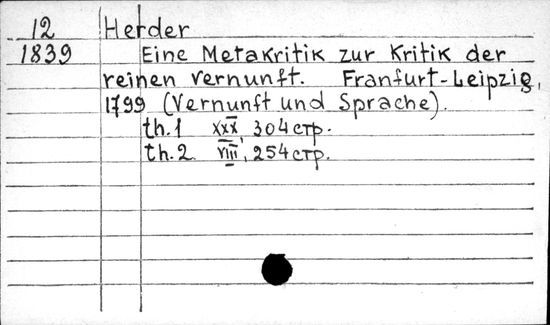 12 Herder
1839 Eine Metakritik zur Kritik der
reinen Vernunft. Franfurt-Leipzig,
1799 (Vernunft und Sprache).
th.1 XXX, 304 стр.
th.2. VIII, 254 стр.